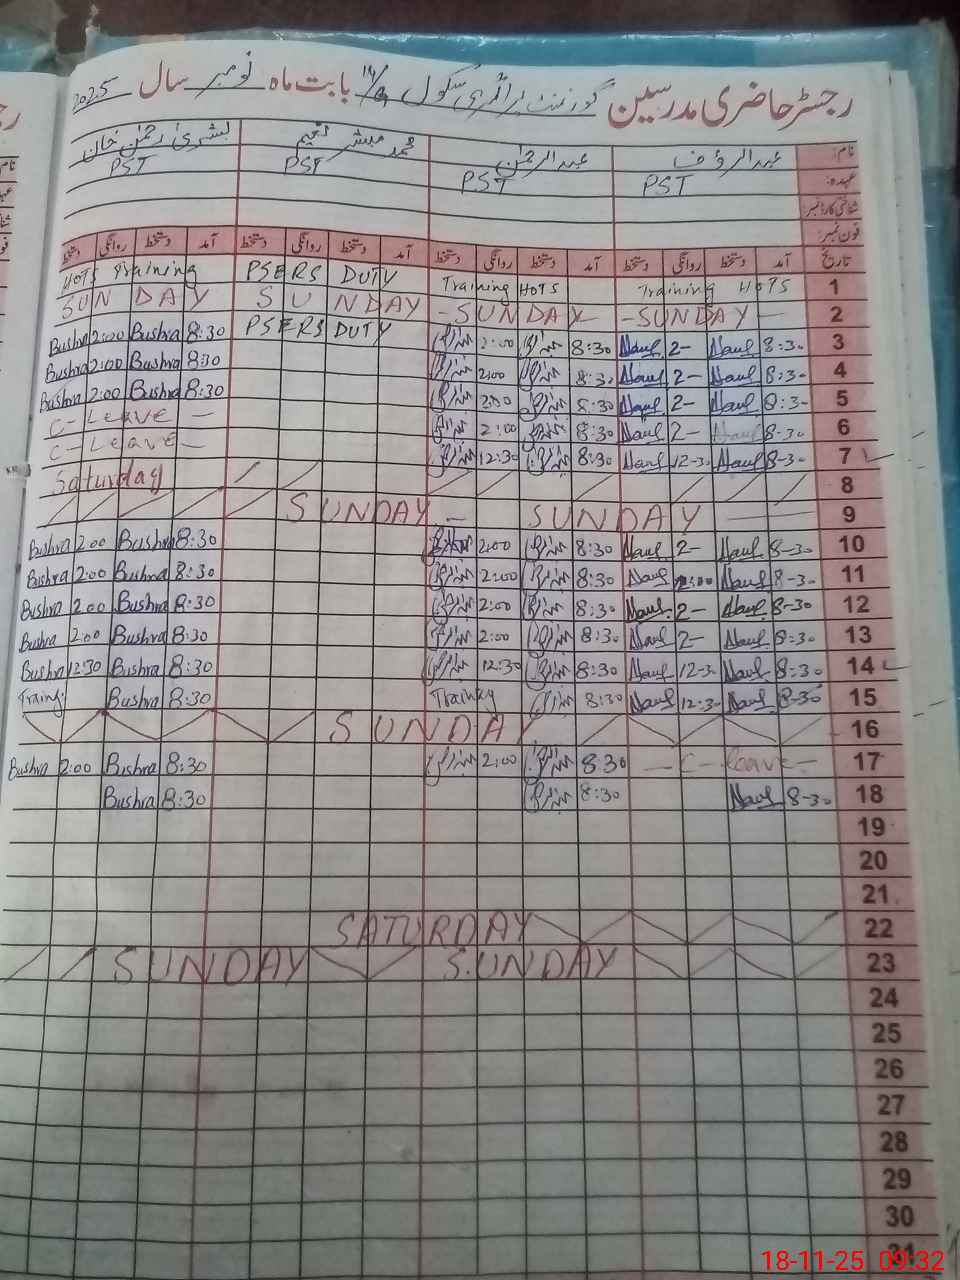 رجسٹر حاضری مدرسین گورنمنٹ پرائمری سکول بابت ماہ نومبر سال 2025
نام: عبدالرؤف عبدالرحمٰن محمد مبشر نعیم بشریٰ رحمٰن خان
عہدہ: PST PST PST PST
شناختی کارڈ نمبر
فون نمبر:
تاریخ آمد دستخط روانگی دستخط آمد دستخط روانگی دستخط آمد دستخط روانگی دستخط آمد دستخط روانگی دستخط
HOTS Training PSERS DUTY Training HOTS Training HOTS 1
SUNDAY SUNDAY -SUNDAY- -SUNDAY- 2
Bushra 2:00 Bushra 8:30 PSERS DUTY 2:00 8:30 2- 8:30 3
Bushra 2:00 Bushra 8:30 2:00 8:30 2- 8:30 4
Bushra 2:00 Bushra 8:30 2:00 8:30 2- 8:30 5
C- Leave - 2:00 8:30 2- 8-30 6
C- Leave - 12:30 8:30 12-30 8-30 7
Saturday 8
SUNDAY - SUNDAY 9
Bushra 2:00 Bushra 8:30 2:00 8:30 2- 8-30 10
Bushra 2:00 Bushra 8:30 2:00 8:30 2:00 8-30 11
Bushra 2:00 Bushra 8:30 2:00 8:30 2- 8-30 12
Bushra 2:00 Bushra 8:30 2:00 8:30 2- 8:30 13
Bushra 12:30 Bushra 8:30 12:30 8:30 12-30 8-30 14
Traing: Bushra 8:30 Training 8:30 12:30 8-30 15
SUNDAY 16
Bushra 2:00 Bushra 8:30 2:00 8:30 - C- leave - 17
Bushra 8:30 8:30 8-30 18
19
20
21
SATURDAY 22
SUNDAY SUNDAY 23
24
25
26
27
28
29
30
31
18-11-25 09:32